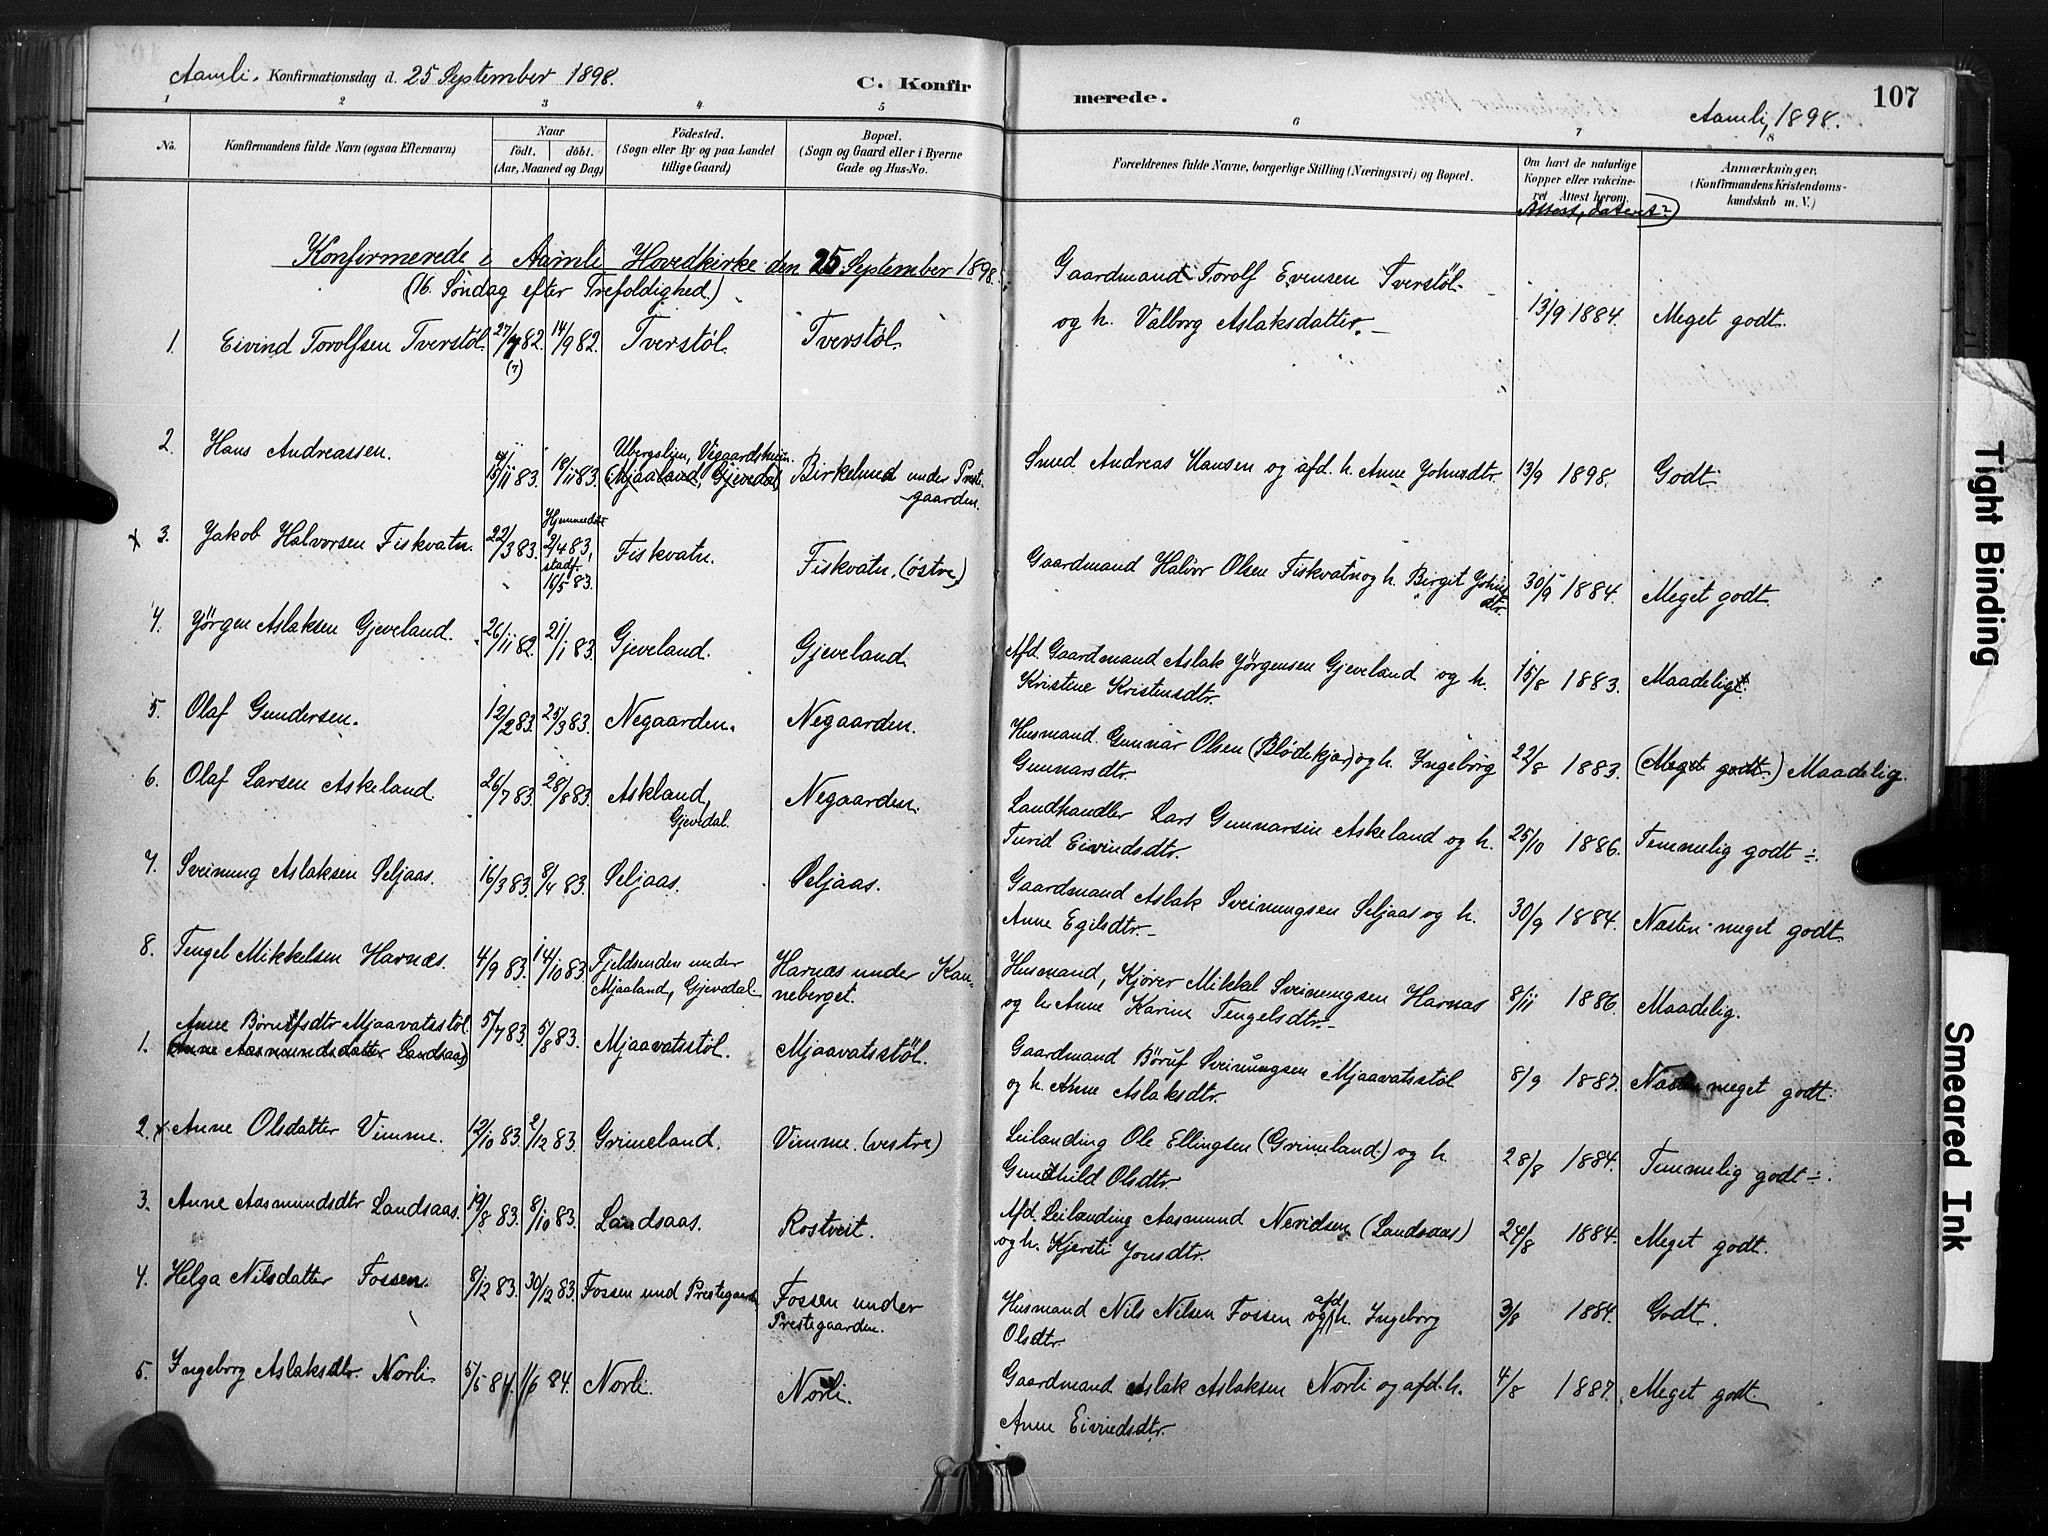 Aamli. Konfirmationsdag d. 25 September 1898.
C. Konfirmerede.
107
Aamli, 1898.
1 2 3 4 5 6 7 8
No.
Konfirmandens fulde Navn (ogsaa Efternavn)
Naar
födt. döbt.
(Aar, Maaned og Dag)
Födested.
(Sogn eller By og paa Landet
tillige Gaard)
Bopæl.
(Sogn og Gaard eller i Byerne
Gade og Hus-No.
Forældrenes fulde Navne, borgerlige Stilling (Næringsvei) og Bopæl.
Om havt de naturlige
Kopper eller vakcine-
ret Attest herom.
Attest, datert?
Anmærkninger.
(Konfirmandens Kristendoms-
kundskab m. V.)
Konfirmerede i Aamli Hovedkirke den 25 September 1898.
(16. Søndag efter Trefoldighed.)
1. Eivind Torolfsen Tverstøl. 27/7 82. (7) 14/9 82. Tverstøl. Tverstøl.
Gaardmand Torolf Evensen Tverstöl
og h. Valborg Aslaksdatter. 13/9 1884. Meget godt.
2. Hans Andreassen. 15/11 83. 18/11 83. Ubergslien, Vegaardsheien. (Mjaaland, Gjevedal) Birkelund under Preste-
gaarden.
Smed Andreas Hansen og afd. h. Anne Johnsdtr. 13/9 1898. Godt
x 3. Jakob Halvorsen Fiskvatn. 22/3 83. Hjemmedøbt 2/4 83, stadf. 16/5 83. Fiskvatn. Fiskvatn. (østre)
Gaardmand Halvor Olsen Fiskvatn og h. Birgit Johns
dtr. 30/9 1884. Meget godt.
4. Jörgen Aslaksen Gjeveland. 26/11 82. 21/1 83. Gjeveland. Gjeveland
Afd. Gaardmand Aslak Jörgensen Gjeveland og h.
Kristine Kristensdtr. 15/8 1883. Maadeligt.
5. Olaf Gundersen. 12/2 83. 25/3 83. Negaarden. Negaarden.
Husmand Gunnar Olsen (Blødekjær) og h. Ingeborg
Gunnarsdtr. 22/8 1883. (Meget godt.) Maadelig.
6. Olaf Larsen Askeland. 26/7 83. 28/8 83. Askland,
Gjevedal. Negaarden.
Landhandler Lars Gunnarsen Askeland og h.
Turid Eivindsdtr. 25/10 1886. Temmelig godt ÷.
7. Sveinung Aslaksen Seljaas. 16/3 83. 8/4 83. Seljaas. Seljaas.
Gaardmand Aslak Sveinungsen Seljaas og h.
Anne Egilsdtr. 30/9 1884. Næsten meget godt.
8. Tengel Mikkelsen Harnæs. 4/9 83. 14/10 83. Fjeldsenden under
Mjaaland, Gjevedal. Harnæs under Kan-
neberget.
Husmand, Kjører Mikkel Sveinungsen Harnæs
og h. Anne Karine Tengelsdtr. 8/11 1886. Maadelig.
1. Anne Børufsdtr Mjaavatsstøl.
(Anne Aasmundsdatter Landsaas) 5/7 83. 5/8 83. Mjaavatsstøl. Mjaavatsstøl.
Gaardmand Böruf Sveinungsen Mjaavatsstøl
og h. Anne Aslaksdtr. 8/9 1887. Næsten meget godt.
2. x Anne Olsdatter Vimme. 12/10 83. 2/12 83. Grimeland. Vimme. (vestre)
Leilænding Ole Ellingsen (Grimeland.) og h.
Gundhild Olsdtr 28/8 1884. Temmelig godt ÷.
3. Anne Aasmundsdtr Landsaas. 19/8 83. 8/10 83. Landsaas. Rostveit.
Afd. Leilænding Aasmund Nevidsen (Landsaas)
og h. Kjersti Jonsdtr. 24/8 1884. Meget godt.
4. Helga Nilsdatter Fossen. 8/12 83. 30/12 83. Fossen und Prestegaarden Fossen under
Prestegaarden.
Husmand Nils Nilsen Fossen og afd. h. Ingeborg
Olsdtr. 3/8 1884. Godt.
5. Ingeborg Aslaksdtr. Norli. 5/5 84. 1/6 84. Norli. Norli.
Gaardmand Aslak Aslaksen Norli og afd. h.
Anne Eivindsdtr. 4/8 1887. Meget godt.
Tight Binding
Smeared Ink